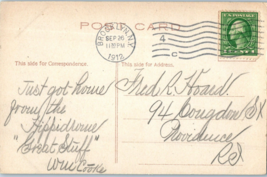 POST CARD
BROOKLYN, N.Y.
SEP 26
11 PM
1912
4
C
This side for Correspondence.
This side for Address.
Just got home
from the
Hippodrome
"Great Stuff"
Will Cooke
Fred C. Hoard
94 Congdon St
Providence
RI